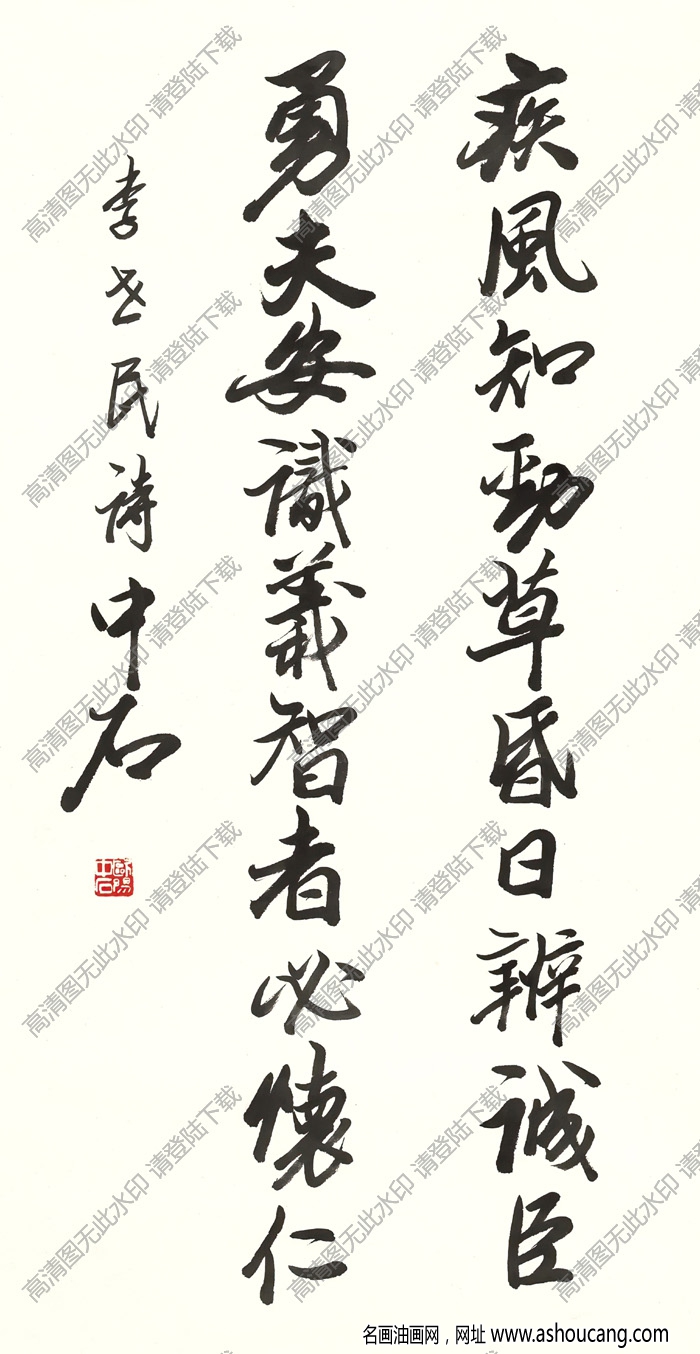 疾風知勁草昏日辨誠臣
勇夫安識義智者必懷仁
李世民詩中石
歐陽中石
高清图无此水印 请登陆下载
名画油画网，网址 www.ashoucang.com